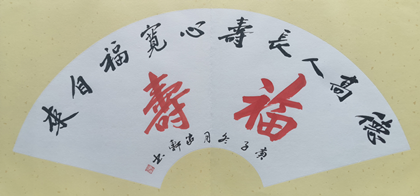 德高人長壽心寬福自來
福壽
子冬月書